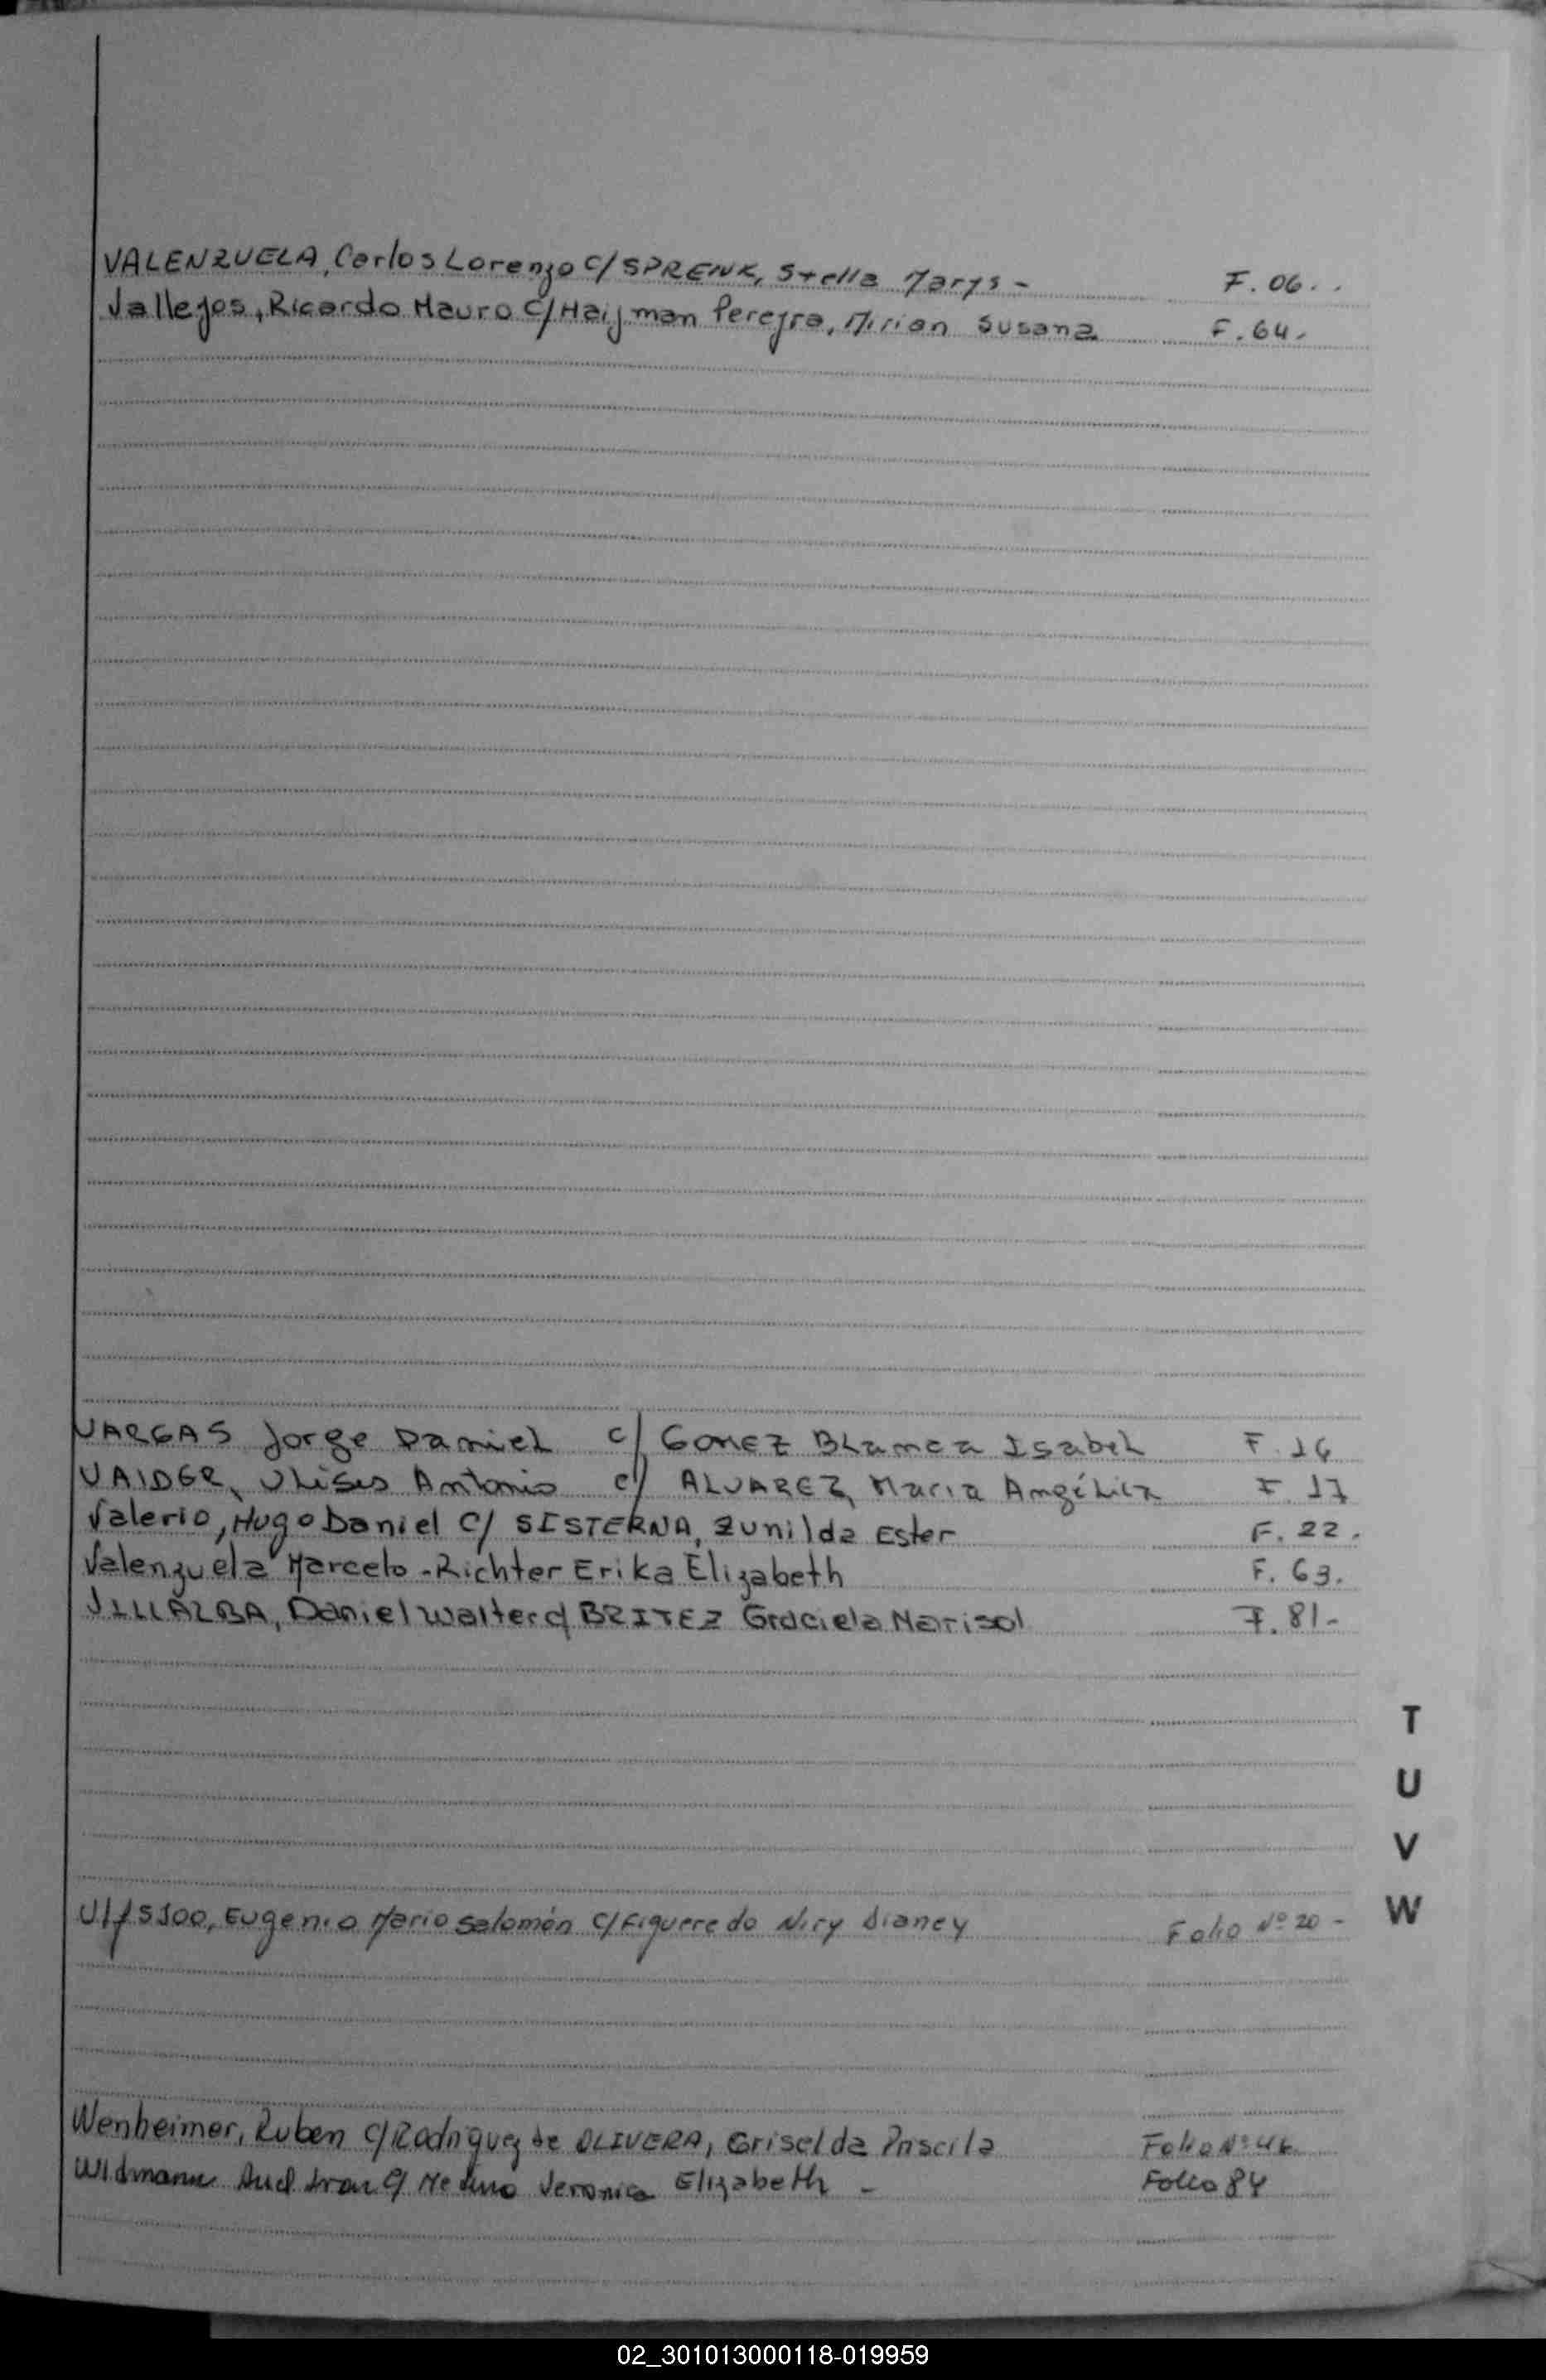 VALENZUELA, Carlos Lorenzo c/ SPRENK, Stella Marys - F. 06..
Vallejos, Ricardo Mauro c/ Haijman Pereyra, Mirian Susana F. 64.
VARGAS Jorge Daniel c/ GOMEZ Blanca Isabel F. 16
VAIDER, Ulises Antonio c/ ALVAREZ, Maria Angélica F. 17
Valerio, Hugo Daniel c/ SISTERNA, Zunilda Ester F. 22.
Valenzuela Marcelo - Richter Erika Elizabeth F. 63.
VILLALBA, Daniel Walter c/ BRITEZ Graciela Marisol F. 81-
T
U
V
Eugenio Mario Salomón c/ Figueredo Niry Dianey Folio Nº 20 -
W
Wenheimer, Ruben c/ Rodriguez de OLIVERA, Griselda Priscila Folio Nº 46
Widmann Ivan c/ Veronica Elizabeth - Folio 84
02_301013000118-019959